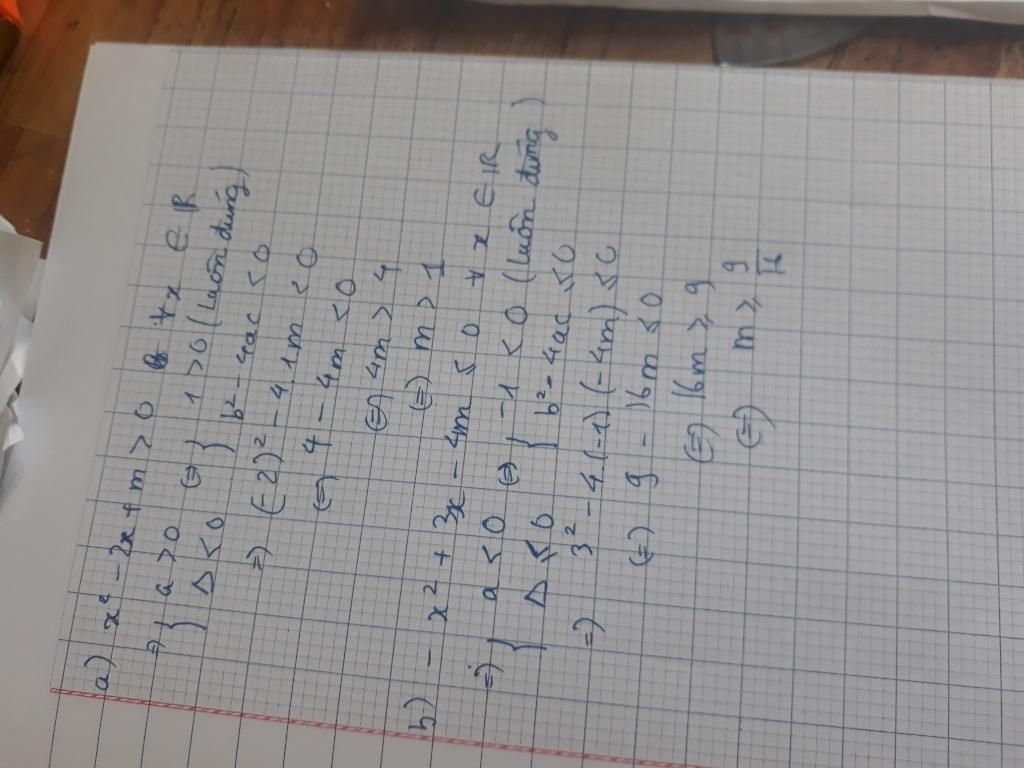 a) x² - 2x + m > 0 ∀x ∈ R
=> { a > 0 (=) { 1 > 0 (luôn đúng)
Δ < 0 b² - 4ac < 0
=) (-2)² - 4.1.m < 0
(=) 4 - 4m < 0
(=) 4m > 4
(=) m > 1
b) - x² + 3x - 4m ≤ 0 ∀x ∈ R
=) { a < 0 (=) { -1 < 0 (luôn đúng)
Δ ≤ 0 b² - 4ac ≤ 0
=) 3² - 4.(-1)(-4m) ≤ 0
(=) 9 - 16m ≤ 0
(=) 16m ≥ 9
(=) m ≥ 9/16